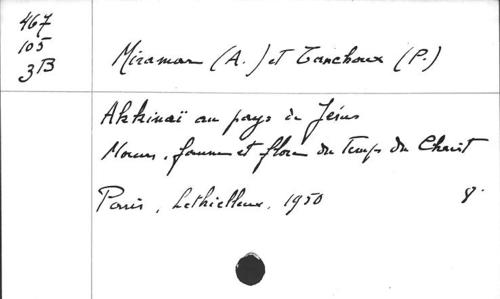 467
105
3B
Miramar (A.) et Tanchoux (P.)
Akkinaï au pays de Jésus
Mœurs, faune et flore du Temps du Christ
Paris, Lethielleux, 1950 8°